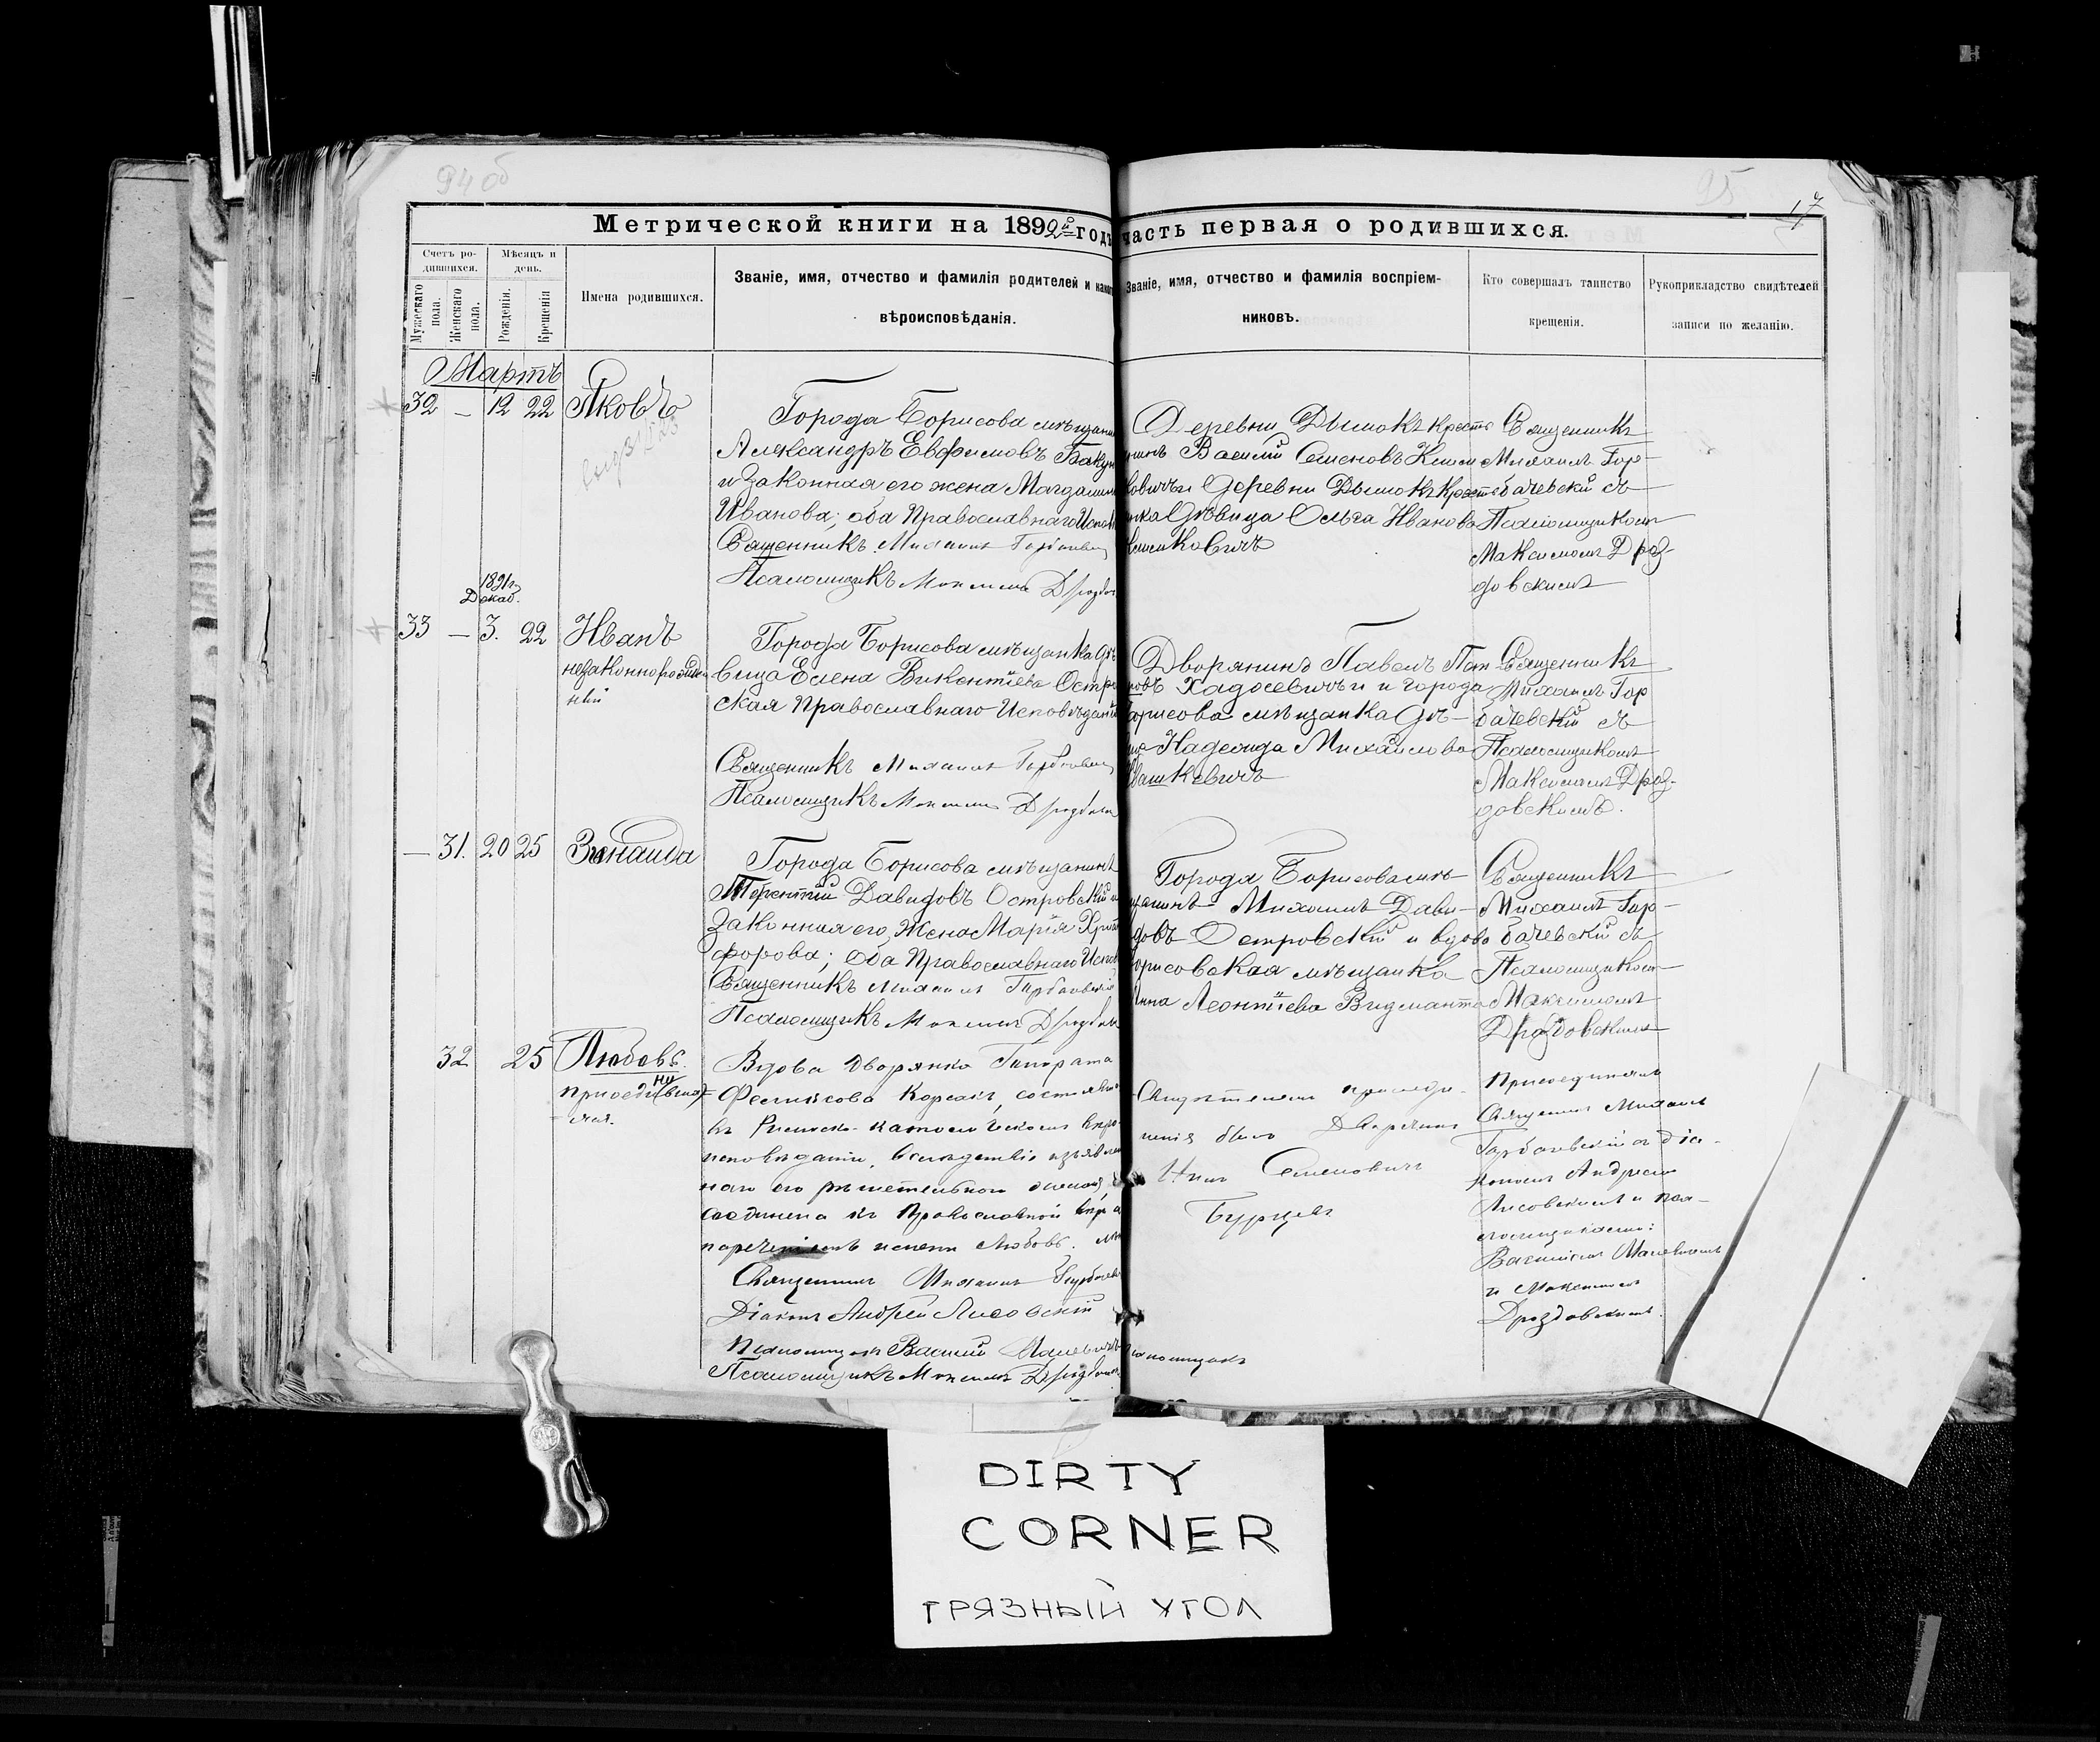 94 об
95
17
Метрической книги на 1892й годъ часть первая о родившихся.
Счетъ родившихся.
Мѣсяцъ и день.
Мужескаго пола.
Женскаго пола.
Рожденія.
Крещенія
Имена родившихся.
Званіе, имя, отчество и фамилія родителей и какого
вѣроисповѣданія.
Званіе, имя, отчество и фамилія воспріем-
никовъ.
Кто совершалъ таинство
крещенія.
Рукоприкладство свидѣтелей
записи по желанію.
Мартъ
32 – 12 22 Яковъ
Города Борисова мѣщани
Александръ Евфимовъ Бакун
и законная его жена Магдалин
Иванова; оба Православнаго Испов
Священникъ Михаилъ Горбачевск
Псаломщикъ Максимъ Дроздов
Деревни Дымокъ крестъ
янинъ Василий Семеновъ Клим
ковичъ и деревни Дымокъ Кресть
янка Дѣвица Ольга Иванова
Климковичъ
Священникъ
Михаилъ Гор-
бачевский съ
Псаломщикомъ
Максимомъ Дроз-
довскимъ
1891 г.
Декаб.
33 – 3. 22 Иванъ
незаконнорожден
ный
Города Борисова мѣщанка Дѣ
вица Елена Викентіева Остро
ская Православнаго Исповѣдані
Священникъ Михаилъ Горбачевск
Псаломщикъ Максимъ Дроздовск
Дворянинъ Павелъ
Хадосевичъ и и города
Борисова мѣщанка Дѣ-
вица Надежда Михайлова
Ивашкевичъ
Священникъ
Михаилъ Гор
бачевский съ
Псаломщикомъ
Максимомъ Дроз-
довскимъ.
– 31. 20 25 Зинаида
Города Борисова мѣщанинъ
Терентій Давидовъ Островскій и
законная его жена Марія Христо
форова; оба Православнаго Испов
Священникъ Михаилъ Горбачевскій
Псаломщикъ Максимъ Дроздовск
Города Борисова мѣ-
щанинъ Михаилъ Дави-
довъ Островский и вдова
Борисовская мѣщанка
Анна Леонтіева Видмантъ
Священникъ
Михаилъ Гор-
бачевский съ
Псаломщикомъ
Максимомъ
Дроздовскимъ
32 25 Любовь
Вдова Дворянка
Феликсова Корсакъ, состоявш
въ Римско-католическомъ вѣро
исповѣданіи, вслѣдствіе изъявлен
наго его рѣшительнаго
соединена къ Православной вѣрѣ с
нареченіемъ имени Любовь.
Священникъ Михаилъ Горбачев
Діаконъ Андрей Лисовскій
Псаломщикъ Василій Малевичъ
Псаломщикъ Максимъ Дроздовск
Свидѣтелемъ присоеди-
ненія былъ Дворянинъ
Семеновичъ
Бурцевъ
Псаломщикъ
Присоединялъ
Священникъ Михаилъ
Горбачевскій съ діа-
кономъ Андреемъ
Лисовскимъ и пса-
ломщиками:
Василіемъ Малевичемъ
и Максимомъ
Дроздовскимъ.
DIRTY
CORNER
ГРЯЗНЫЙ УГОЛ